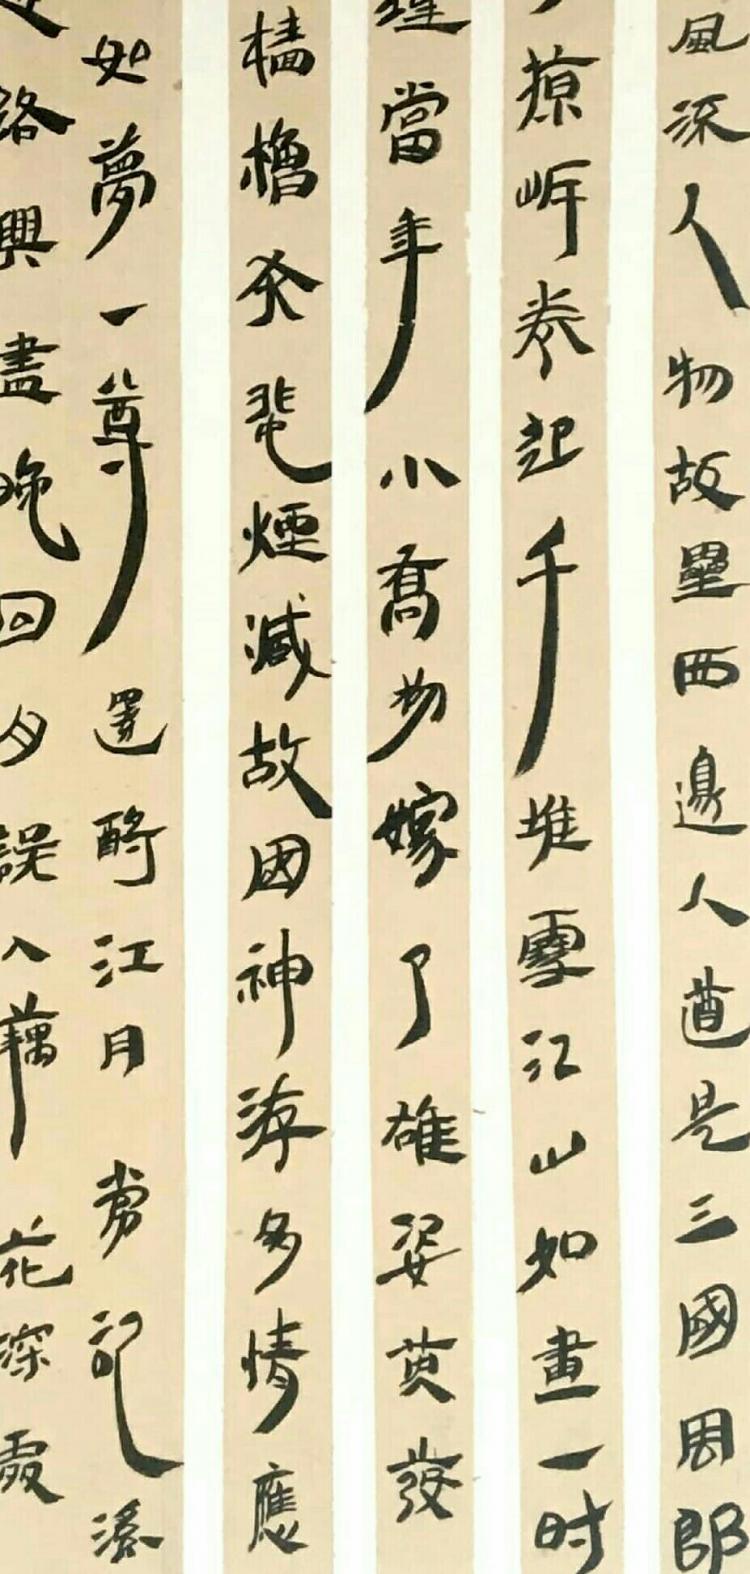 風流人物故壘西邊人道是三國周郎
掠岸卷起千堆雪江山如畫一时
瑾當年小喬初嫁了雄姿英發
檣櫓灰飛煙滅故国神游多情應
如夢一尊還酹江月常記溪
路興盡晚回舟誤入藕花深處